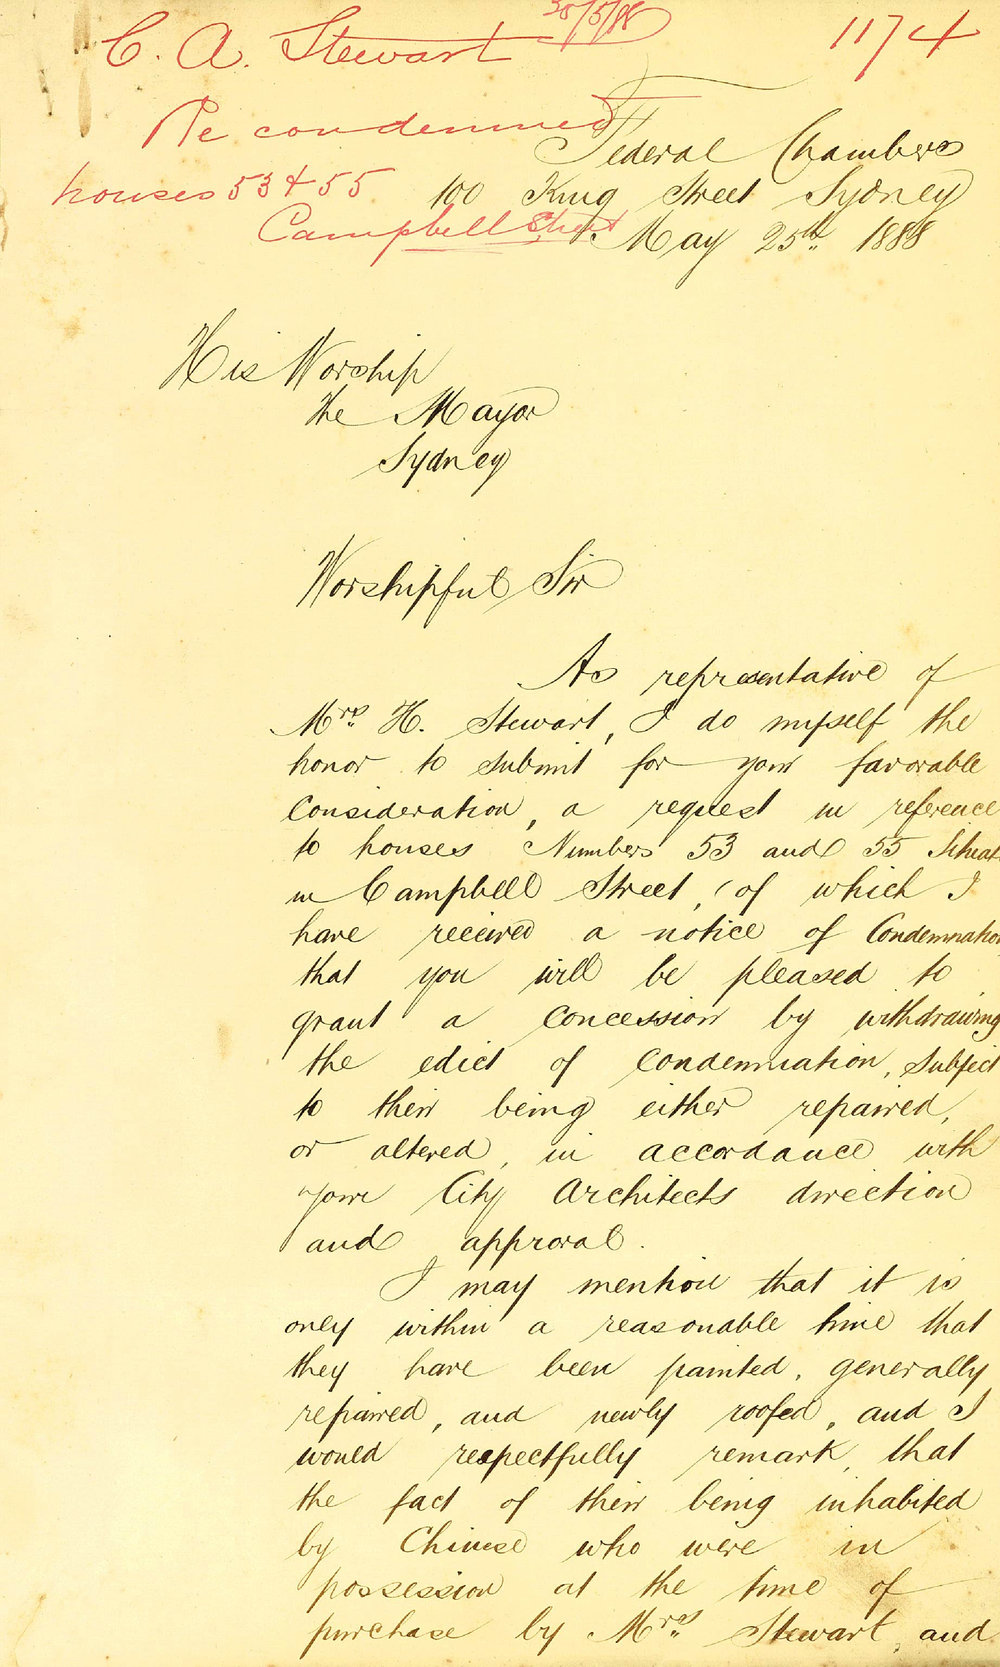 30/5/88
C. A. Stewart
11/4
Re condemned
houses 53 & 55
Campbell Street
Federal Chambers
100 King Street Sydney
May 25th 1888
His Worship
the Mayor
Sydney
Worshipful Sir
As representative of
Mrs H. Stewart, I do myself the
honor to submit for your favorable
Consideration, a request in reference
to houses Numbers 53 and 55 Situat
in Campbell Street, (of which I
have received a notice of Condemnation
that you will be pleased to
grant a concession by withdrawing
the edict of condemnation, subject
to their being either repaired,
or altered, in accordance with
your City Architects direction
and approval.
I may mention that it is
only within a reasonable time that
they have been painted, generally
repaired, and newly roofed, and I
would respectfully remark, that
the fact of their being inhabited
by Chinese who were in
possession at the time of
purchase by Mrs Stewart, and